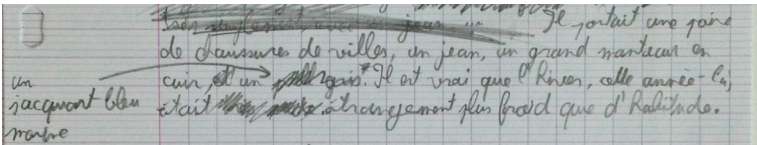 Il portait une paire
de chaussures de villes, un jean, un grand manteau en
cuir, et un gris. Il est vrai que l'hiver, cette année-là,
était étrangement plus froid que d'habitude.
un
jacquart bleu
marine